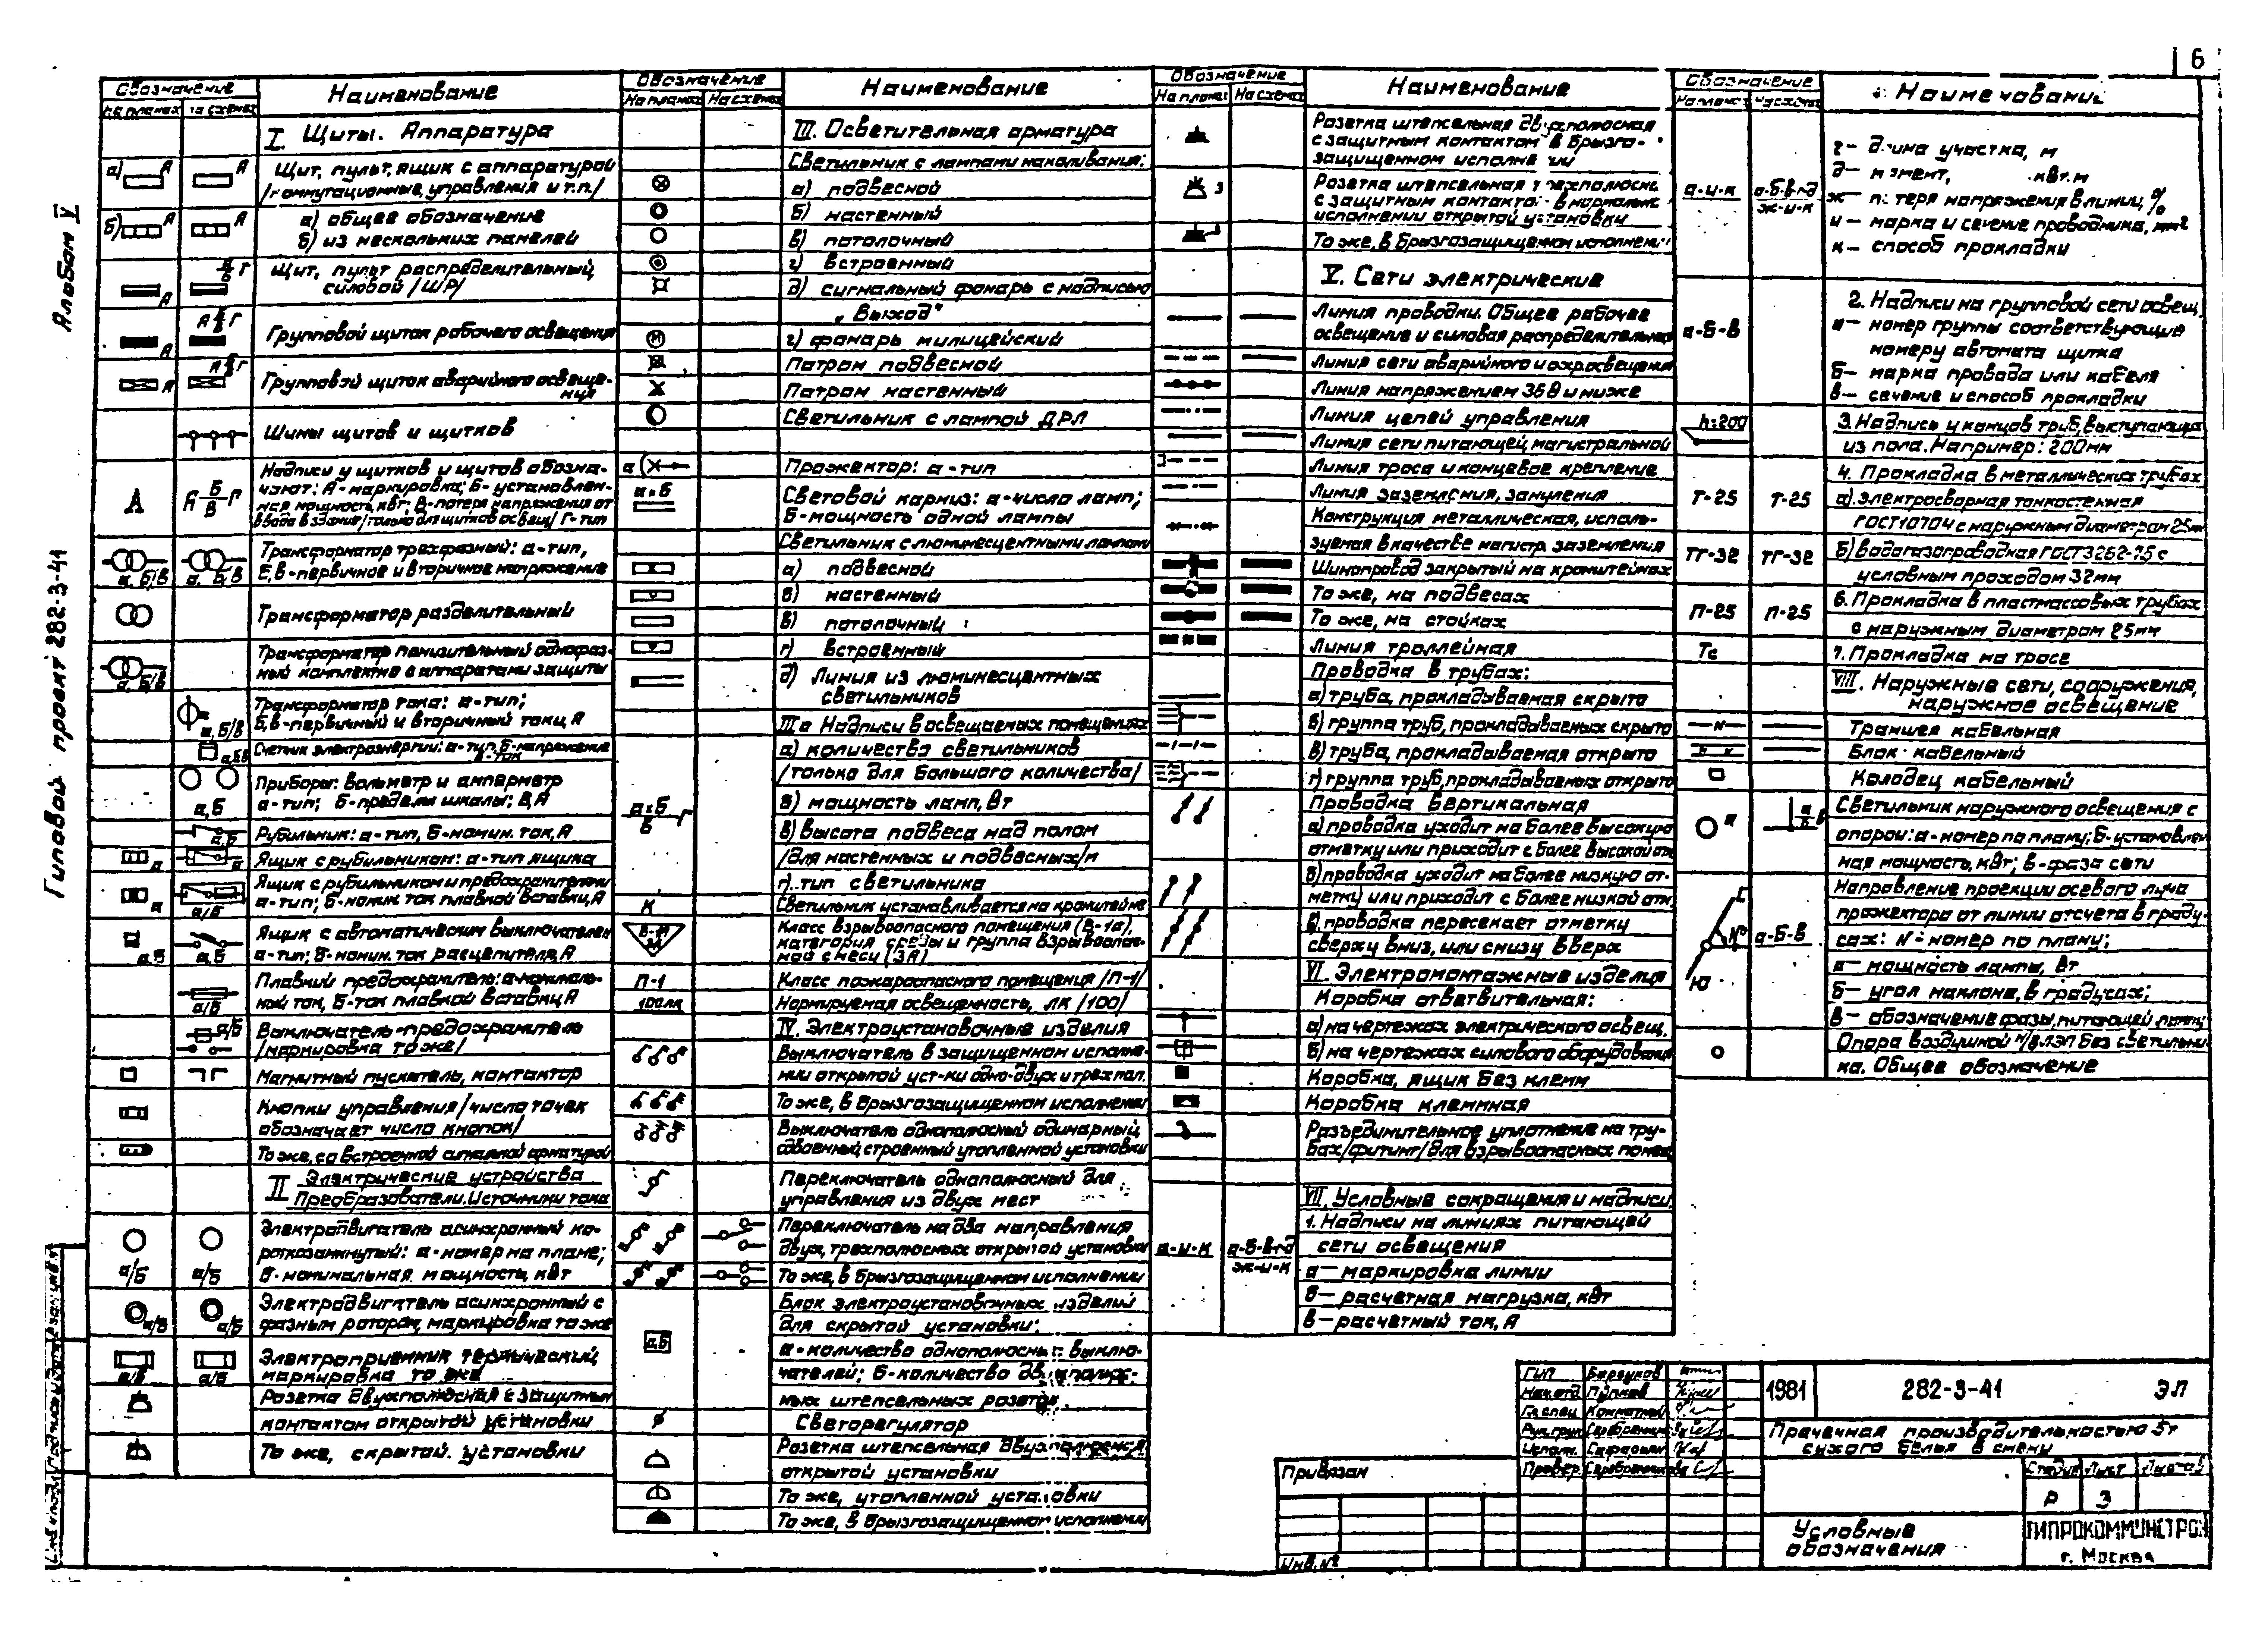 6
Альбом V
Типовой проект 282-3-41
Обозначение
На планах На схемах
Наименование
I. Щиты. Аппаратура
а) А А
Щит, пульт, ящик с аппаратурой
/коммутационные, управления и т.п./
б) А А
а) общее обозначение
б) из нескольких панелей
Щит, пульт распределительный,
силовой /ШР/
Групповой щиток рабочего освещения
Групповой щиток аварийного освеще-
ния
Шины щитов и щитков
А А Б/В Г
Надписи у щитков и щитов обозна-
чают: А-маркировка; Б-установлен-
ная мощность, кВт; В-потеря напряжения от
ввода в здание/только для щитков освещ/ Г-тип
а, Б/В а, Б/В
Трансформатор трехфазный: а-тип,
Б, в-первичное и вторичное напряжение
Трансформатор разделительный
а, Б/В
Трансформатор понизительный однофаз-
ный комплектно с аппаратами защиты
а, Б/В
Трансформатор тока: а-тип;
Б, в-первичный и вторичный токи, А
Счетчик электроэнергии: а-тип, Б-напряжение
В-ток
а, Б
Приборы: вольтметр и амперметр
а-тип; Б-пределы шкалы; В, А
а, Б
Рубильник: а-тип, Б-номин. ток, А
а а
Ящик с рубильником: а-тип ящика
а а/Б
Ящик с рубильником и предохранителями
а-тип; Б-номин. ток плавкой вставки, А
а, Б а, Б
Ящик с автоматическим выключателем
а-тип; Б-номин. ток расцепителя, А
а/Б
Плавкий предохранитель: а-номиналь-
ный ток, Б-ток плавкой вставки, А
а/Б
Выключатель-предохранитель
/маркировка то же/
Магнитный пускатель, контактор
Кнопки управления /число точек
обозначает число кнопок/
То же, со встроенной сигнальной арматурой
II Электрические устройства
Преобразователи. Источники тока
а/Б а/Б
Электродвигатель асинхронный ко-
роткозамкнутый: а-номер на плане;
Б-номинальная мощность, кВт
а/Б а/Б
Электродвигатель асинхронный с
фазным ротором, маркировка то же
а/Б а/Б
Электроприемник термический,
маркировка то же
Розетка двухполюсная с защитным
контактом открытой установки
То же, скрытой установки
Обозначение
На планах На схемах
Наименование
III. Осветительная арматура
Светильник с лампами накаливания:
а) подвесной
б) настенный
в) потолочный
г) встроенный
д) сигнальный фонарь с надписью
„Выход"
М г) фонарь милицейский
Патрон подвесной
Патрон настенный
Светильник с лампой ДРЛ
а Прожектор: а-тип
а×Б
Световой карниз: а-число ламп;
Б-мощность одной лампы
Светильник с люминесцентными лампами
а) подвесной
б) настенный
в) потолочный
г) встроенный
д) Линия из люминесцентных
светильников
III а Надписи в освещаемых помещениях
а) количество светильников
/только для большого количества/
б) мощность ламп, Вт
в) высота подвеса над полом
/для настенных и подвесных/м
г). тип светильника
К Светильник устанавливается на кронштейне
Класс взрывоопасного помещения (В-1а),
категория среды и группа взрывоопас-
ной смеси (3А)
П-1 Класс пожароопасного помещения /П-1/
100лк Нормируемая освещенность, лк /100/
IV. Электроустановочные изделия
Выключатель в защищенном исполне-
нии открытой уст-ки одно-двух и трехпол.
То же, в брызгозащищенном исполнении
Выключатель однополюсный одинарный,
сдвоенный, строенный утопленной установки
Переключатель однополюсный для
управления из двух мест
Переключатель на два направления,
двух, трехполюсных открытой установки
То же, в брызгозащищенном исполнении
Блок электроустановочных изделий
для скрытой установки:
а,Б а-количество однополюсных выклю-
чателей; Б-количество двухполюс-
ных штепсельных розеток.
Светорегулятор
Розетка штепсельная двухполюсная
открытой установки
То же, утопленной установки
То же, в брызгозащищенном исполнении
Обозначение
На планах На схемах
Наименование
Розетка штепсельная двухполюсная
с защитным контактом в брызго-
защищенном исполнении
3
Розетка штепсельная трехполюсная
с защитным контактом в нормальн.
исполнении открытой установки
То же, в брызгозащищенном исполнении
V. Сети электрические
Линия проводки. Общее рабочее
освещение и силовая распределительная
Линия сети аварийного и охр.освещения
Линия напряжением 36В и ниже
Линия цепей управления
Линия сети питающей, магистральной
Линия троса и концевое крепление
Линия заземления, зануления
Конструкция металлическая, исполь-
зуемая в качестве магистр. заземления
Шинопровод закрытый на кронштейнах
То же, на подвесах
То же, на стойках
Линия троллейная
Проводка в трубах:
а) труба, прокладываемая скрыто
б) группа труб, прокладываемых скрыто
в) труба, прокладываемая открыто
г) группа труб, прокладываемых открыто
Проводка вертикальная
а) проводка уходит на более высокую
отметку или приходит с более высокой отм.
б) проводка уходит на более низкую от-
метку или приходит с более низкой отм.
в) проводка пересекает отметку
сверху вниз, или снизу вверх
VI. Электромонтажные изделия
Коробка ответвительная:
а) на чертежах электрического освещ.
б) на чертежах силового оборудования
Коробка, ящик без клемм
Коробка клеммная
Разъединительное уплотнение на тру-
бах/фитинг/для взрывоопасных помещ.
VII. Условные сокращения и надписи.
1. Надписи на линиях питающей
сети освещения
а-и-к а-Б-в-г-д
ж-и-к
а — маркировка линии
б — расчетная нагрузка, кВт
в — расчетный ток, А
Обозначение
На планах На схемах
Наименование
а-и-к а-Б-в-г-д
ж-и-к
г — длина участка, м
д — момент, кВт.м
ж — потеря напряжения в линии, %
и — марка и сечение проводника, мм²
к — способ прокладки
а-Б-в
2. Надписи на групповой сети освещ.
а — номер группы соответствующие
номеру автомата щитка
Б — марка провода или кабеля
в — сечение и способ прокладки
h=200
3. Надпись у концов труб, выступающих
из пола. Например: 200мм
4. Прокладка в металлических трубах
Т-25 Т-25
а). электросварная тонкостенная
ГОСТ10704 с наружным диаметром 25мм
ТГ-32 ТГ-32
б) водогазопроводная ГОСТ3262-75 с
условным проходом 32мм
П-25 П-25
6. Прокладка в пластмассовых трубах
с наружным диаметром 25мм
Тс 7. Прокладка на тросе
VIII. Наружные сети, сооружения,
наружное освещение
Траншея кабельная
Блок кабельный
Колодец кабельный
Светильник наружного освещения с
опорой: а-номер по плану; Б-установлен-
ная мощность, кВт; в-фаза сети
Направление проекции осевого луча
прожектора от линии отсчета в граду-
сах: №-номер по плану;
С № Ю а-Б-в
а — мощность лампы, Вт
Б — угол наклона, в градусах;
в — обозначение фазы, питающей лампу
Опора воздушной н/в ЛЭП без светильни-
ка. Общее обозначение
ГИП
Нач.отд. Пупков
Гл.спец.
Рук.груп.
Исполн.
Провер.
1981
282-3-41
ЭЛ
Прачечная производительностью 5т
сухого белья в смену
Стадия Лист Листов
Р 3
Условные
обозначения
ГИПРОКОММУНСТРОЙ
г. Москва
Привязан
Инв.№